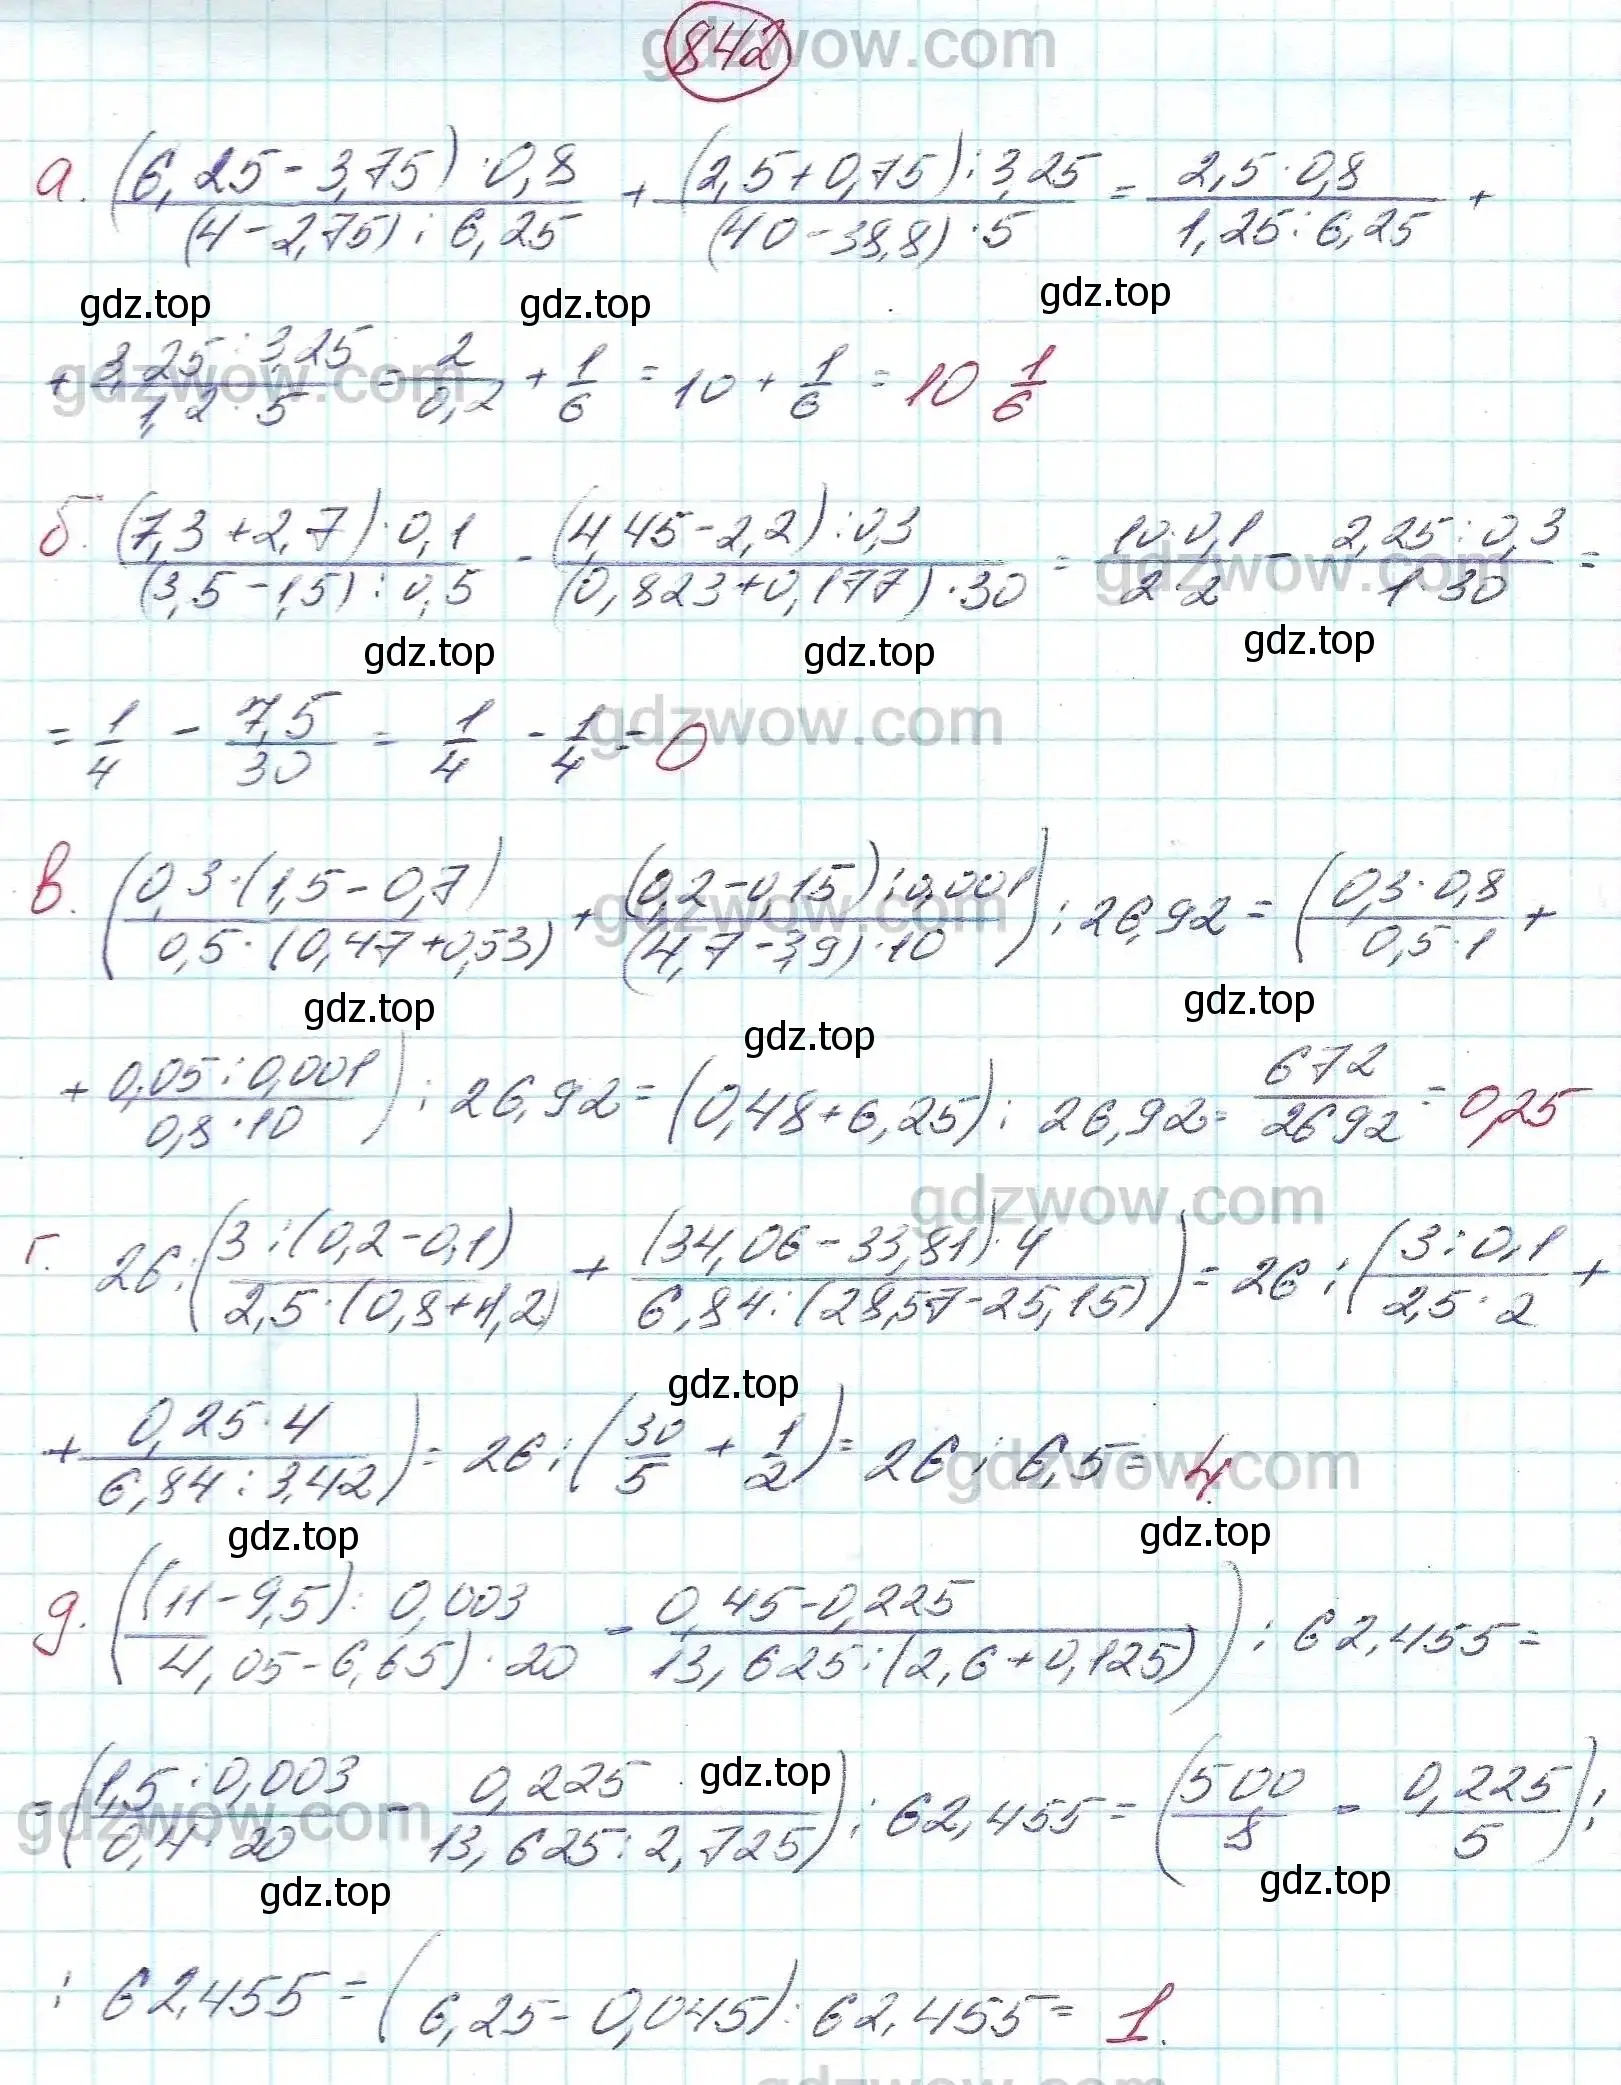 gdzwow.com
842
а. ((6,25-3,75)·0,8)/((4-2,75):6,25) + ((2,5+0,75):3,25)/((40-38,8)·5) = (2,5·0,8)/(1,25:6,25) +
gdz.top gdz.top gdz.top
+ (3,25:3,25)/(1,2·5) = 2/0,2 + 1/6 = 10 + 1/6 = 10 1/6
gdzwow.com
б. ((7,3+2,7)·0,1)/((3,5-1,5):0,5) - ((4,45-2,2):0,3)/((0,823+0,177)·30) = (10·0,1)/(2·2) - (2,25:0,3)/(1·30) =
gdzwow.com
gdz.top gdz.top gdz.top
= 1/4 - 7,5/30 = 1/4 - 1/4 = 0
gdzwow.com
в. ((0,3·(1,5-0,7))/(0,5·(0,47+0,53)) + ((0,2-0,15):0,001)/((4,7-3,9)·10)) : 26,92 = ((0,3·0,8)/(0,5·1) +
gdzwow.com
gdz.top gdz.top gdz.top
+ (0,05:0,001)/(0,8·10)) : 26,92 = (0,48+6,25) : 26,92 = 672/2692 = 0,25
gdzwow.com
г. 26:((3:(0,2-0,1))/(2,5·(0,8+1,2)) + ((34,06-33,81)·4)/(6,84:(28,57-25,15))) = 26:((3:0,1)/(2,5·2) +
gdz.top
+ (0,25·4)/(6,84:3,42)) = 26:(30/5 + 1/2) = 26 : 6,5 = 4.
gdzwow.com
gdz.top gdz.top
д. (((11-9,5):0,003)/(4,05-6,65)·20 - (0,45-0,225)/(13,625:(2,6+0,125))) : 62,455 =
= ((1,5:0,003)/(0,4·20) - 0,225/(13,625:2,725)) : 62,455 = (500/8 - 0,225/5) :
gdz.top
gdzwow.com
gdz.top gdz.top
: 62,455 = (6,25-0,045) : 62,455 = 1.
gdzwow.com